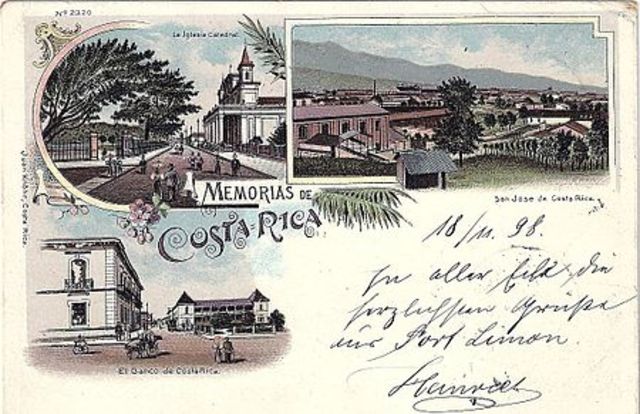 Nº 2320
La Iglesia Catedral.
San Jose de Costa Rica.
MEMORIAS DE
COSTA-RICA
18/11. 98.
In aller Eile die
herzlichsten Grüße
aus Port Limon.
Heinrich
El Banco de Costa Rica.
Costa Rica.